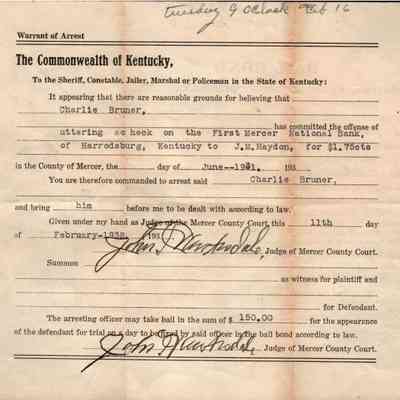 Tuesday 9 O'Clock Feb 16
Warrant of Arrest
The Commonwealth of Kentucky,
To the Sheriff, Constable, Jailer, Marshal or Policeman in the State of Kentucky:
It appearing that there are reasonable grounds for believing that
Charlie Bruner,
has committed the offense of
uttering a check on the First Mercer National Bank,
of Harrodsburg, Kentucky to J.M,Haydon, for $1.75cts
in the County of Mercer, the day of June--1931. 193
You are therefore commanded to arrest said Charlie Bruner,
and bring him before me to be dealt with according to law.
Given under my hand as Judge of the Mercer County Court, this 11th day
of February-1932, 193
John, Judge of Mercer County Court.
Summon
as witness for plaintiff and
for Defendant.
The arresting officer may take bail in the sum of $ 150.00 for the appearance
of the defendant for trial on a day to be fixed by said officer in the bail bond according to law.
John Judge of Mercer County Court.